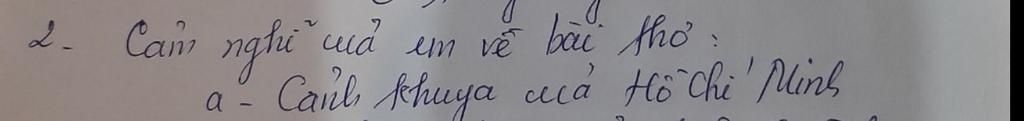 2- Cảm nghĩ của em về bài thơ:
a - Cảnh khuya của Hồ Chí Minh